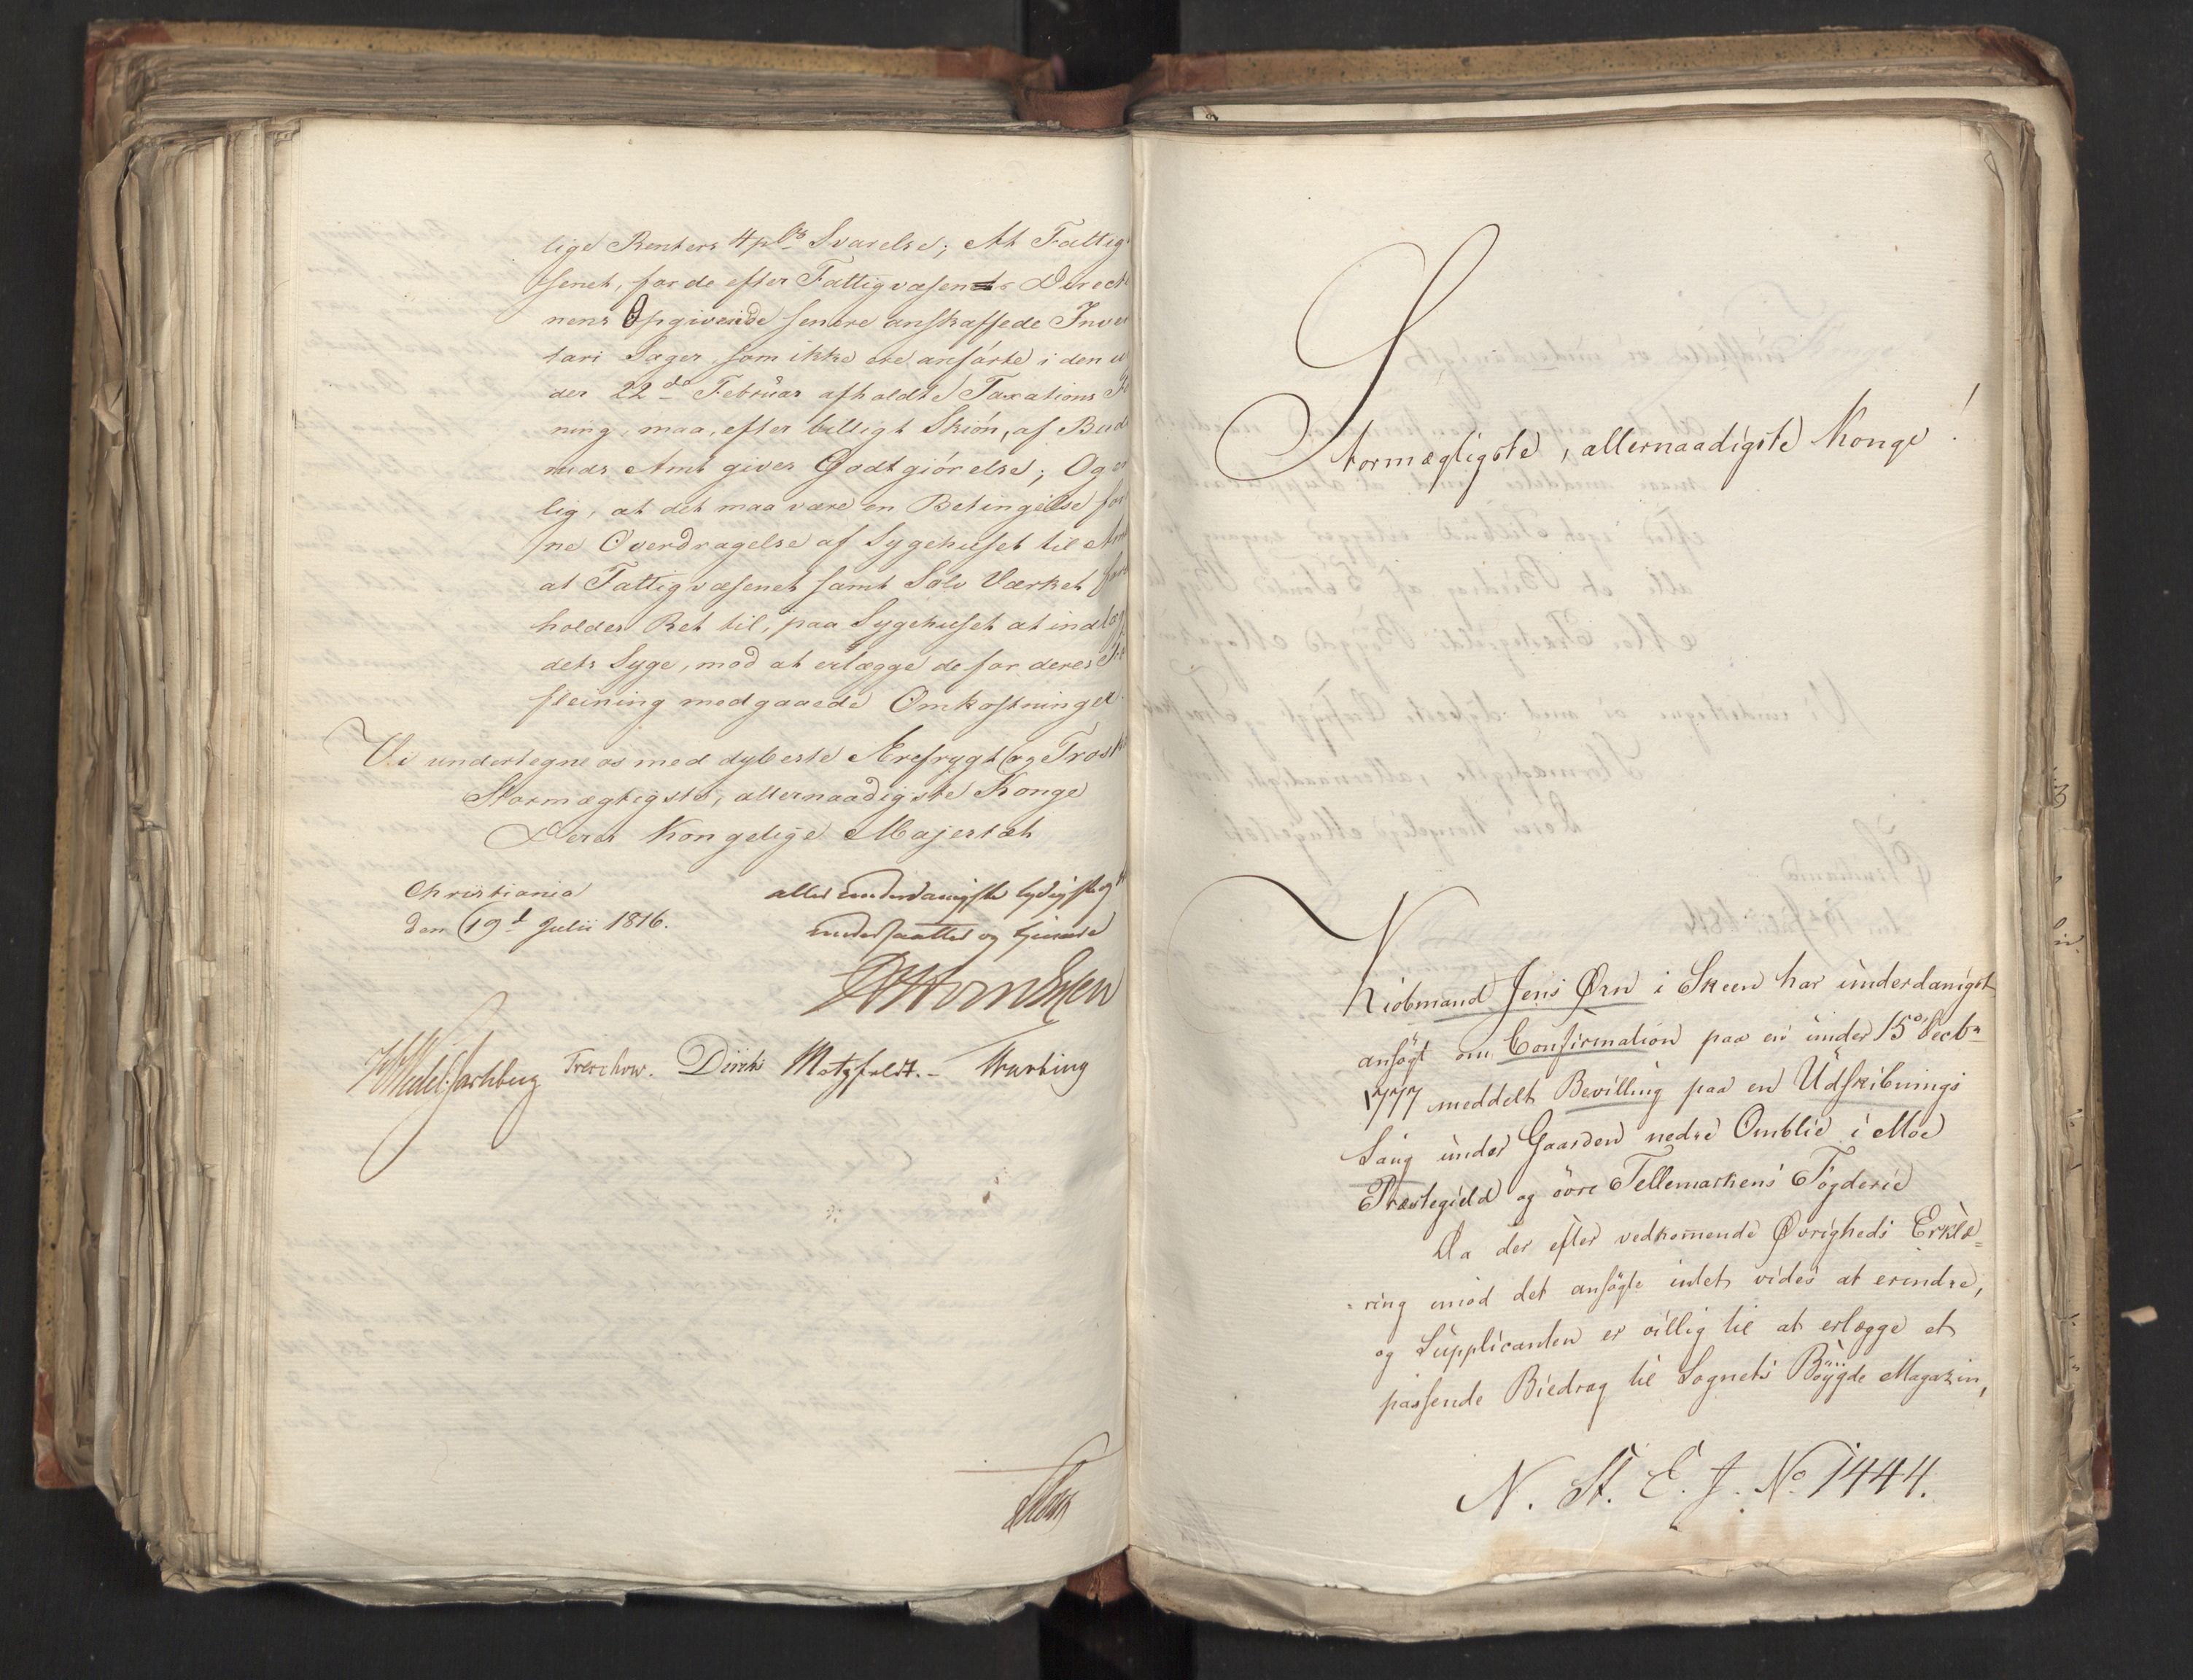 lige Renters 4 p Ct Svarelse; At Fattig
senet, for de efter Fattigvæsenets Direct
nens Opgivende senere anskaffede Inven
tari Sager, som ikke ere anførte i den u
der 22de Februar afholdte Taxations
ning, maa, efter billigt Skiön, af Bud
ruds Amt gives Godtgiörelse; Og
lig, at det maa være en Betingelse for
ne Overdragelse af Sygehuset til Amt
at Fattigvæsenet samt Sölv Værket
holder Ret til, paa Sygehuset at indlæg
dets Syge, mod at erlægge de for deres
pleining medgaaede Omkostninger.
Vi undertegne os med dybeste Ærefrygt og Trosk
Stormægtigste, allernaadigste Konge
Deres Kongelige Majestæt
Christiania
den 19d Julii 1816.
allerunderdanigste lydigste og
undersaatter og tjenere
Treschow. Diriks Motzfeldt.
Stormægtigste, allernaadigste Konge!
Kiöbmand Jens Ørn i Skeen har underdanigst
ansögt om Confirmation paa en under 15de Decbr
1777 meddelt Bevilling paa en Udskibnings
Saug under Gaarden nedre Omblie i Moe
Præstegield og övre Tellemarkens Fogderie
Da der efter vedkommende Øvrigheds Erklæ=
=ring imod det ansögte intet vides at erindre,
og Supplicanten er villig til at erlægge et
passende Biedrag til Sognets Böygde Magazin,
N. St. E. J. No 1444.